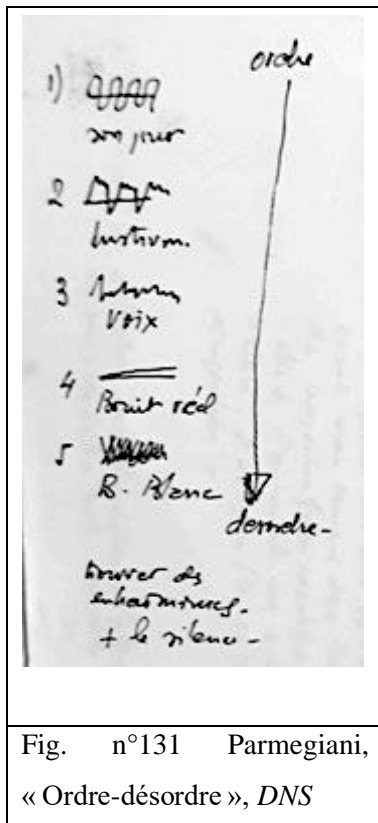 ordre
1)
son pur
2
Instrum.
3
Voix
4
Bruit réel
5
B. Blanc
desordre -
trouver des
enharmoniques.
+ le silence -
Fig. n°131 Parmegiani,
« Ordre-désordre », DNS